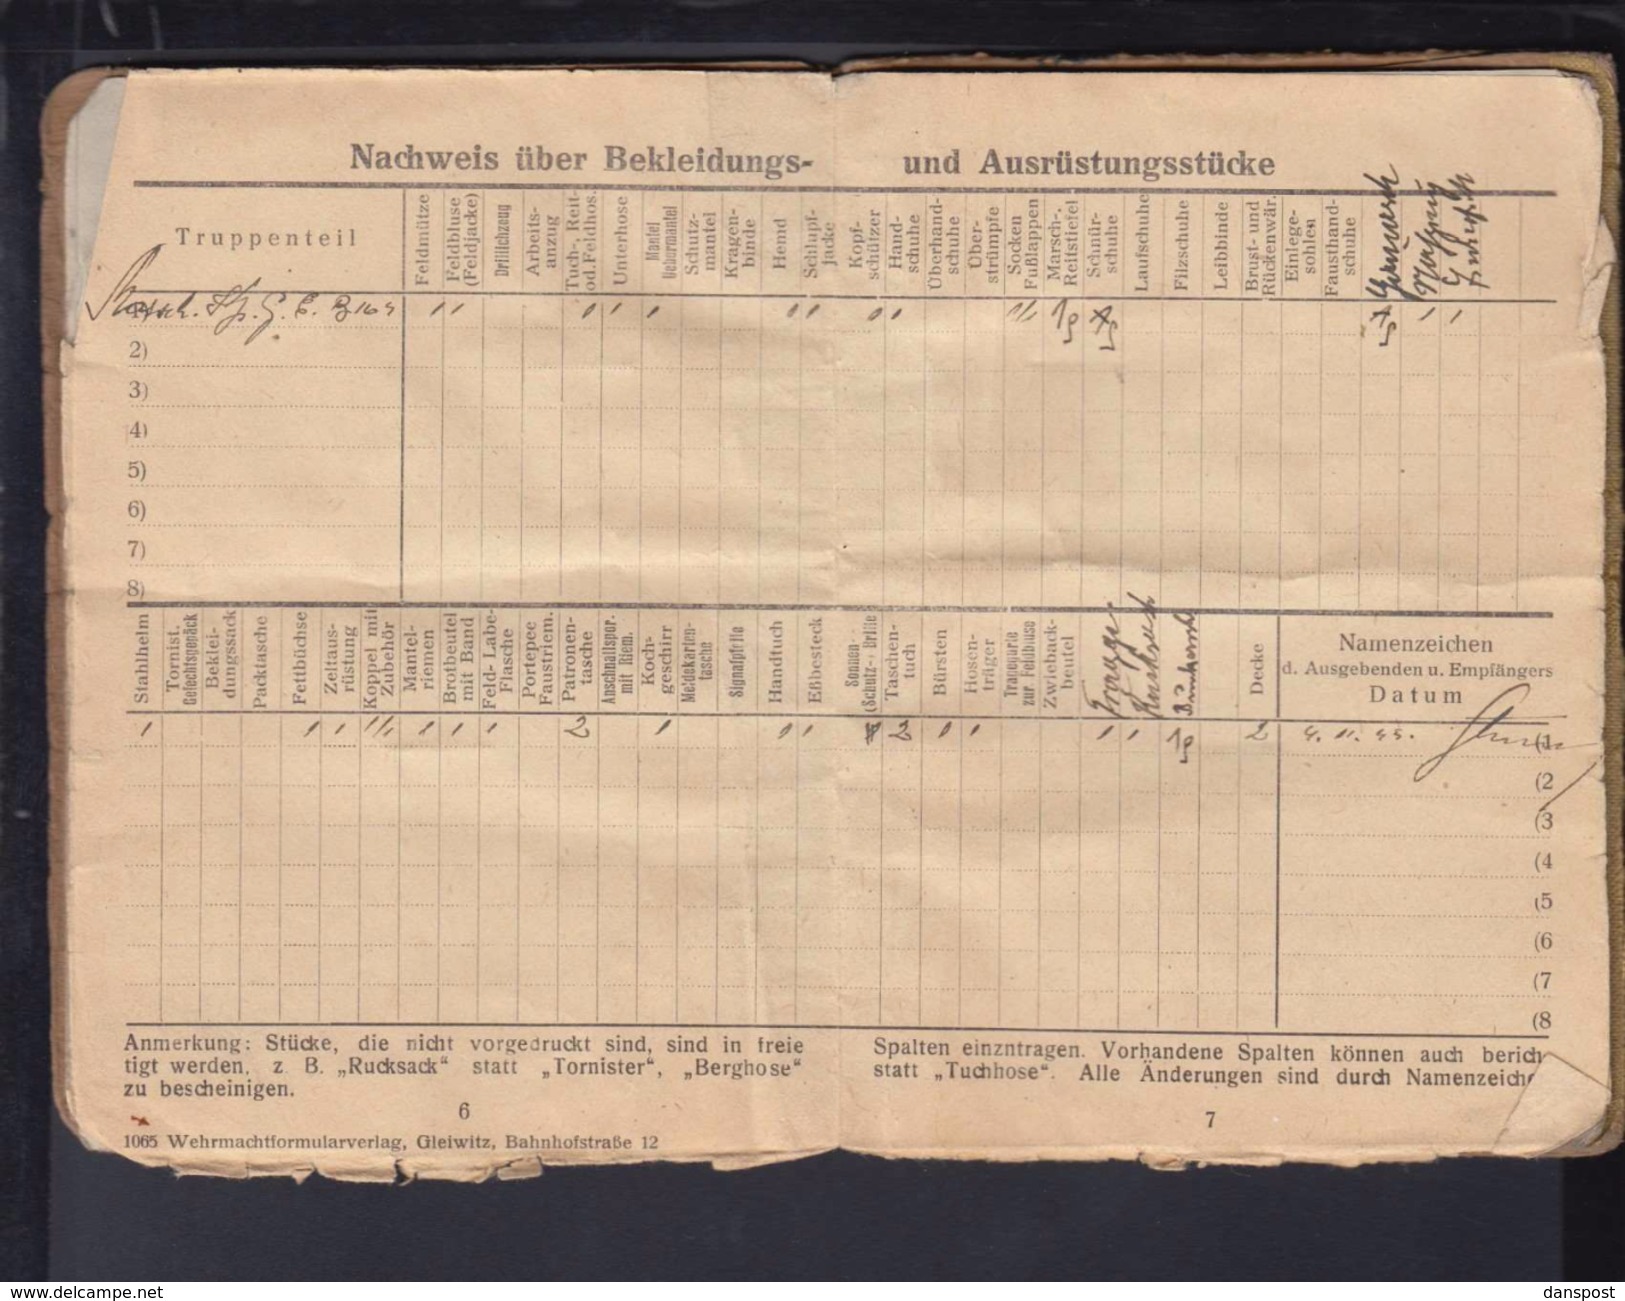 Nachweis über Bekleidungs- und Ausrüstungsstücke
Truppenteil
Feldmütze
Feldbluse (Feldjacke)
Drillichzeug
Arbeits-anzug
Tuch-, Reit- od. Feldhos.
Unterhose
Mantel Uebermantel
Schutz-mantel
Kragen-binde
Hemd
Schlupf-jacke
Kopf-schützer
Hand-schuhe
Überhand-schuhe
Über-strümpfe
Socken Fußlappen
Marsch-, Reitstiefel
Schnür-schuhe
Laufschuhe
Filzschuhe
Leibbinde
Brust- und Rückenwär.
Einlege-sohlen
Fausthand-schuhe
2)
3)
4)
5)
6)
7)
8)
Stahlhelm
Tornist. Gefechtsgepäck
Beklei-dungssack
Packtasche
Fettbüchse
Zeltaus-rüstung
Koppel mit Zubehör
Mantel-riemen
Brotbeutel mit Band
Feld- Labe-Flasche
Portepee Faustriem.
Patronen-tasche
Anschnallspor. mit Riem.
Koch-geschirr
Meldekarten-tasche
Signalpfeife
Handtuch
Eßbesteck
Sonnen- (Schutz-) Brille
Taschen-tuch
Bürsten
Hosen-träger
Zwieback-beutel
Decke
Namenzeichen
d. Ausgebenden u. Empfängers
Datum
1 1 1 1/1 1 1 1 2 1 1 1 2 1 1 1 1 2
(1
(2
(3
(4
(5
(6
(7
(8
Anmerkung: Stücke, die nicht vorgedruckt sind, sind in freie Spalten einzntragen. Vorhandene Spalten können auch berich
tigt werden, z B. „Rucksack“ statt „Tornister“, „Berghose“ statt „Tuchhose“. Alle Änderungen sind durch Namenzeiche
zu bescheinigen.
6
7
1065 Wehrmachtformularverlag, Gleiwitz, Bahnhofstraße 12
www.delcampe.net
danspost